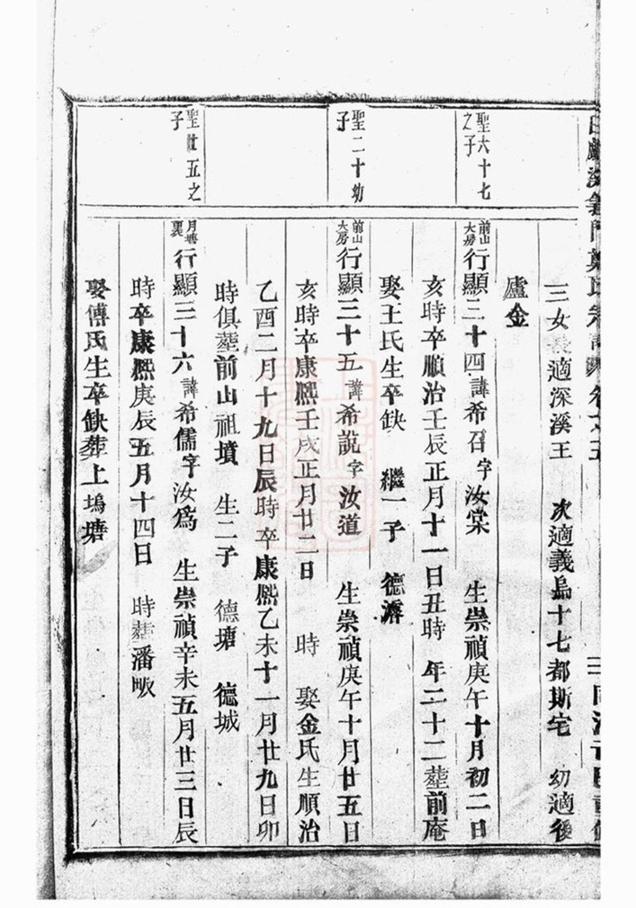 三女長適深溪王 次適義烏十七都斯宅 幼適後
盧金
聖六十七之子
前山大房 行顯三十四諱希召字汝棠 生崇禎庚午十月初二日
亥時卒順治壬辰正月十一日丑時 年二十二塟前庵
娶王氏生卒缺 繼一子 德濂
聖二十幼子
前山大房 行顯三十五諱希說字汝道 生崇禎庚午十月廿五日
亥時卒康熙壬戌正月廿二日 時 娶金氏生順治
乙酉二月十九日辰時卒康熙乙未十一月廿九日卯
時俱塟前山祖墳 生二子 德塘 德城
聖廿五之子
月塘裏 行顯三十六諱希儒字汝為 生崇禎辛未五月廿三日辰
時卒康熙庚辰五月十四日 時塟潘畈
娶傅氏生卒缺葬上塢塘